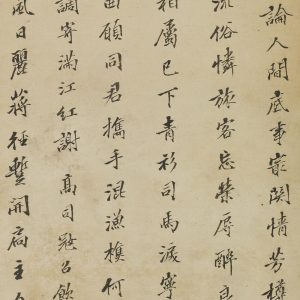 論人間底事最關情芳樽
流俗憐旅客忘榮辱醉
相屬已下青衫司馬淚寧
願同君攜手混漁樵何
調寄滿江紅謝高司寇召飲
風日麗蔣徑暫開扃主